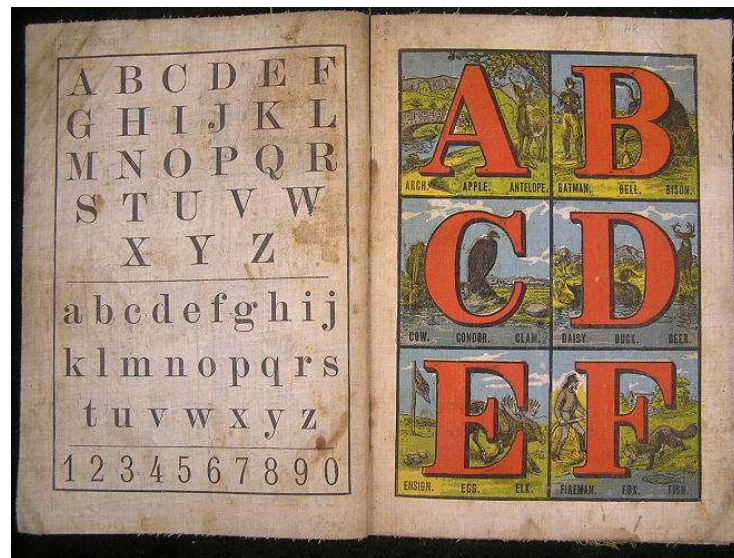 A B C D E F
G H I J K L
M N O P Q R
S T U V W
X Y Z
a b c d e f g h i j
k l m n o p q r s
t u v w x y z
1 2 3 4 5 6 7 8 9 0
A B
ARCH. APPLE. ANTELOPE. BATMAN. BELL. BISON.
C D
COW. CONDOR. CLAM. DAISY. DUCK. DEER.
E F
ENSIGN. EGG. ELK. FIREMAN. FOX. FISH.